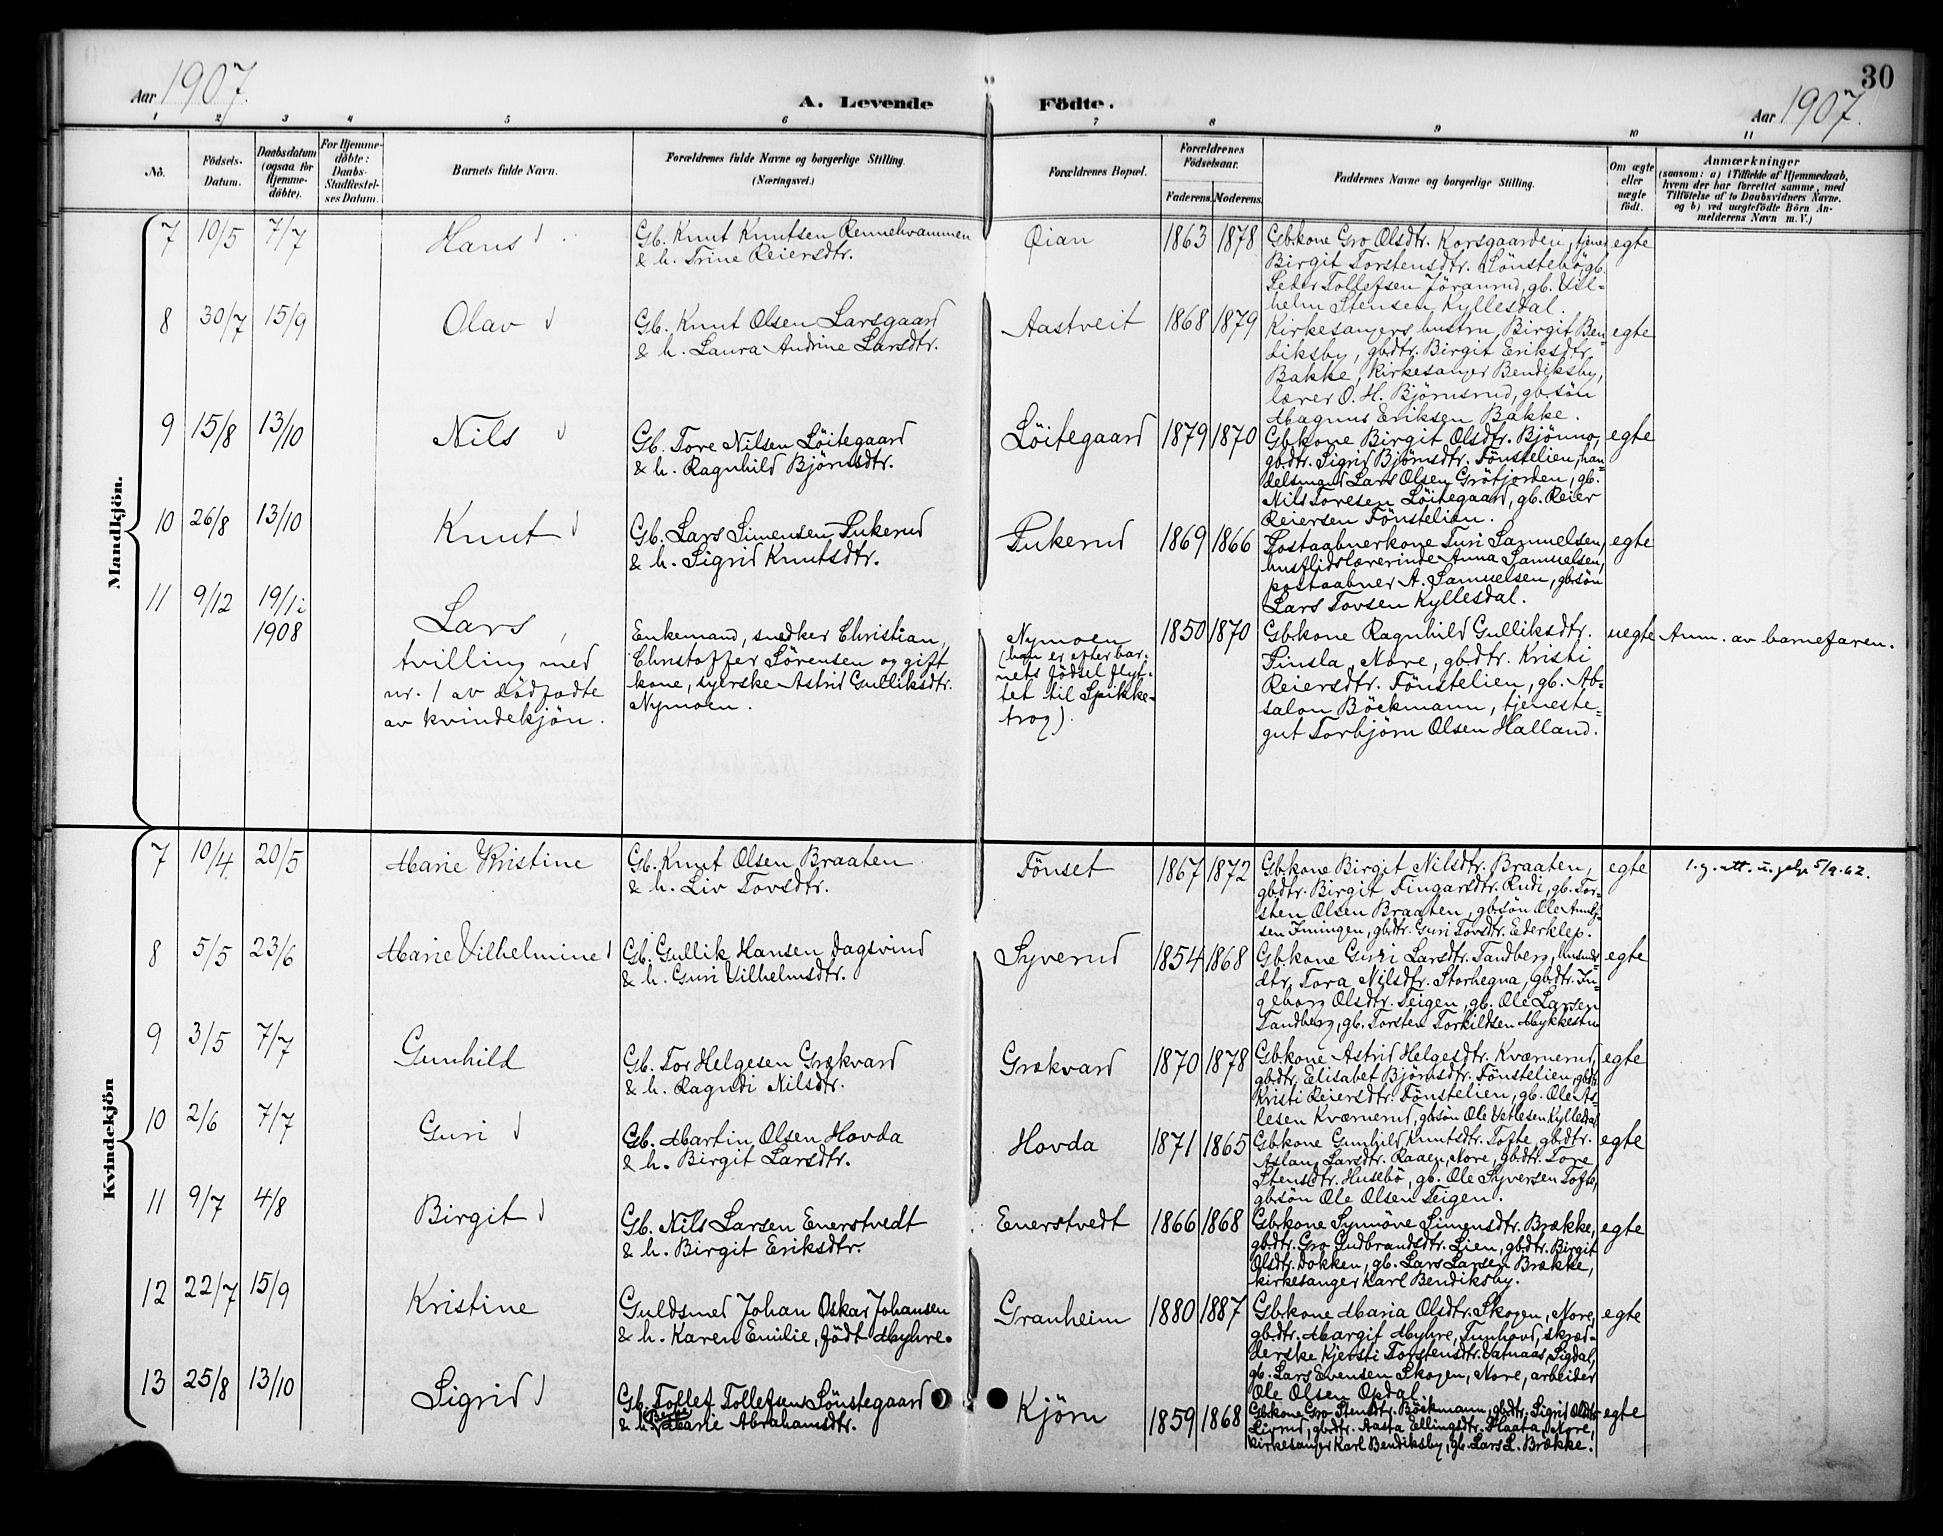 30
Aar 1907.
A. Levende Födte.
Aar 1907.
1 2 3 4 5 6 7 8 9 10 11
No.
Födsels-
Datum.
Daabsdatum
(ogsaa for
Hjemme-
döbte).
For Hjemme-
döbte:
Daabs-
Stadfæstel-
ses Datum.
Barnets fulde Navn.
Forældrenes fulde Navne og borgerlige Stilling.
(Næringsvei.)
Forældrenes Bopæl.
Forældrenes
Födselsaar.
Faderens. Moderens.
Faddernes Navne og borgerlige Stilling.
Om ægte
eller
uægte
födt.
Anmærkninger
(saasom: a) i Tilfælde af Hjemmedaab,
hvem der har forrettet samme, med
Tilföielse af to Daabsvidners Navne.
og b) ved uægtefödte Börn An-
melderens Navn m. V.)
Mandkjön.
7 10/5 7/7 Hans
Gb. Knut Knutsen Rennehvammen
& h. Trine Reiersdtr.
Öian 1863 1878
Gbkone Gro Olsdtr. Korsgaarden, tjenes
Birgit Torstensdtr. Lönstebö, gb.
Peder Tollefsen Jöranrud, gb. Vil-
helm Stensen Kyllesdal.
egte
8 30/7 15/9 Olav
Gb. Knut Olsen Larsgaard
& h. Laura Andrine Larsdtr.
Aastveit 1868 1879
Kirkesangers hustru Birgit Ben-
diksby, gbdtr. Birgit Eriksdtr.
Bakke, kirkesanger Bendiksby,
lærer O. H. Björnsrud, gbsön
Magnus Eriksen Bakke.
egte
9 15/8 13/10 Nils
Gb. Tore Nilsen Löitegaard
& h. Ragnhild Björnsdtr.
Löitegaard 1879 1870
Gbkone Birgit Olsdtr. Björnno,
gbdtr. Sigrid Björnsdtr. Fönstelien, han-
delsmand Lars Olsen Grötjorden, gb.
Nils Toresen Löitegaard, gb. Reier
Reiersen Fönstelien.
egte
10 26/8 13/10 Knut
Gb. Lars Simensen Pukerud
& h. Sigrid Knutsdtr.
Pukerud 1869 1866
Postaabnerkone Turi Samuelsen,
husflidslærerinde Anna Samuelsen,
postaabner A. Samuelsen, gbsön
Lars Tovsen Kyllesdal.
egte
11 9/12 19/1 i
1908
Lars,
tvilling med
nr. 1 av dödfödte
av kvindekjön.
Enkemand, snedker Christian
Christoffer Sörensen og gift
kone, syerske Astrid Gulliksdtr.
Nymoen.
Nymoen
(han er efter bar-
nets födsel flyt-
tet til Spikke-
trog).
1850 1870
Gbkone Ragnhild Gulliksdtr.
Finsla, Nore, gbdtr. Kristi
Reiersdtr. Fönstelien, gb. Ab-
salon Böckmann, tjeneste-
gut Torbjörn Olsen Halland.
uegte Anm. av barnefaren.
Kvindekjön
7 10/4 20/5 Marie Kristine
Gb. Knut Olsen Braaten
& h. Liv Tovsdtr.
Fönset 1867 1872
Gbkone Birgit Nilsdtr. Braaten,
gbdtr. Birgit Fingarsdtr. Rudi, gb. Tor-
sten Olsen Braaten, gbsön Ole
sen Iningen, gbdtr. Guri Tovsdtr. Ederklep.
egte 5/9.62.
8 5/5 23/6 Marie Vilhelmine
Gb. Gullik Hansen Dagsvind
& h. Guri Vilhelmsdtr.
Syverud 1854 1868
Gbkone Guri Larsdtr. Tandberg, husmds-
dtr. Tora Nilsdtr. Storhegna, gbdtr. In-
geborg Olsdtr. Teigen, gb. Ole Larsen
Tandberg, gb. Torsten Torkildsen Mykkestu
egte
9 3/5 7/7 Gunhild
Gb. Tor Helgesen Grækvard
& h. Ragndi Nilsdtr.
Grækvard 1870 1878
Gbkone Astrid Helgesdtr. Kværnerud,
gbdtr. Elisabet Björnsdtr. Fönstelien, gbdtr.
Kristi Reiersdtr. Fönstelien, gb. Ole As-
lesen Kværnerud, gbsön Ole Vetlesen Kyllesdal
egte
10 2/6 7/7 Guri
Gb. Martin Olsen Hovda
& h. Birgit Larsdtr.
Hovda 1871 1865
Gbkone Gunhild Knutsdtr. Tofte, gbdtr.
Aslaug Larsdtr. Raaen, Nore, gbdtr. Tore
Stensdtr. Husebö, gb. Ole Syversen Tofte,
gbsön Ole Olsen Teigen.
egte
11 9/7 4/8 Birgit
Gb. Nils Larsen Enerstvedt
& h. Birgit Eriksdtr.
Enerstvedt 1866 1868
Gbkone Synnöve Simensdtr. Brække,
gbdtr. Gro Gudbrandsdtr. Lien, gbdtr. Birgit
Olsdtr. Dokken, gb. Lars Larsen Brække,
kirkesanger Karl Bendiksby.
egte
12 22/7 15/9 Kristine
Guldsmed Johan Oskar Johansen
& h. Karen Emilie, födt Myhre.
Granheim 1880 1887
Gbkone Maria Olsdtr. Skogen, Nore,
gbdtr. Margit Myhre, Tunhovd, skræd-
derske Kjersti Torstensdtr. Vatnaas, Sigdal,
gb. Lars Evensen Skogen, Nore, arbeider
Ole Olsen Opdal.
egte
13 25/8 13/10 Sigrid
Gb. Tollef Tollefsen Lönstegaard
& h. Marie Abrahamsdtr.
Kjörn 1859 1868
Gbkone Gro Stensdtr. Böckmann, gbdtr. Sigrid Olsdtr.
Livrud, gbdtr. Aasta Ellingsdtr. Flaata, Nore,
kirkesanger Karl Bendiksby, gb. Lars L. Brække.
egte